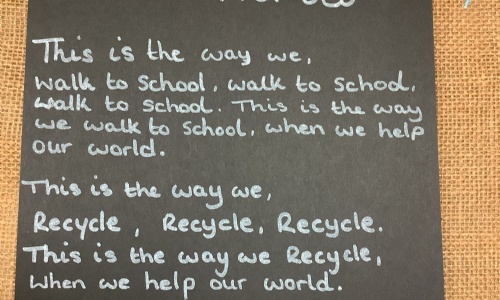 This is the way we,
walk to School, walk to School,
walk to School. This is the way
we walk to School, when we help
our world.
This is the way we,
Recycle, Recycle, Recycle.
This is the way we Recycle,
when we help our world.